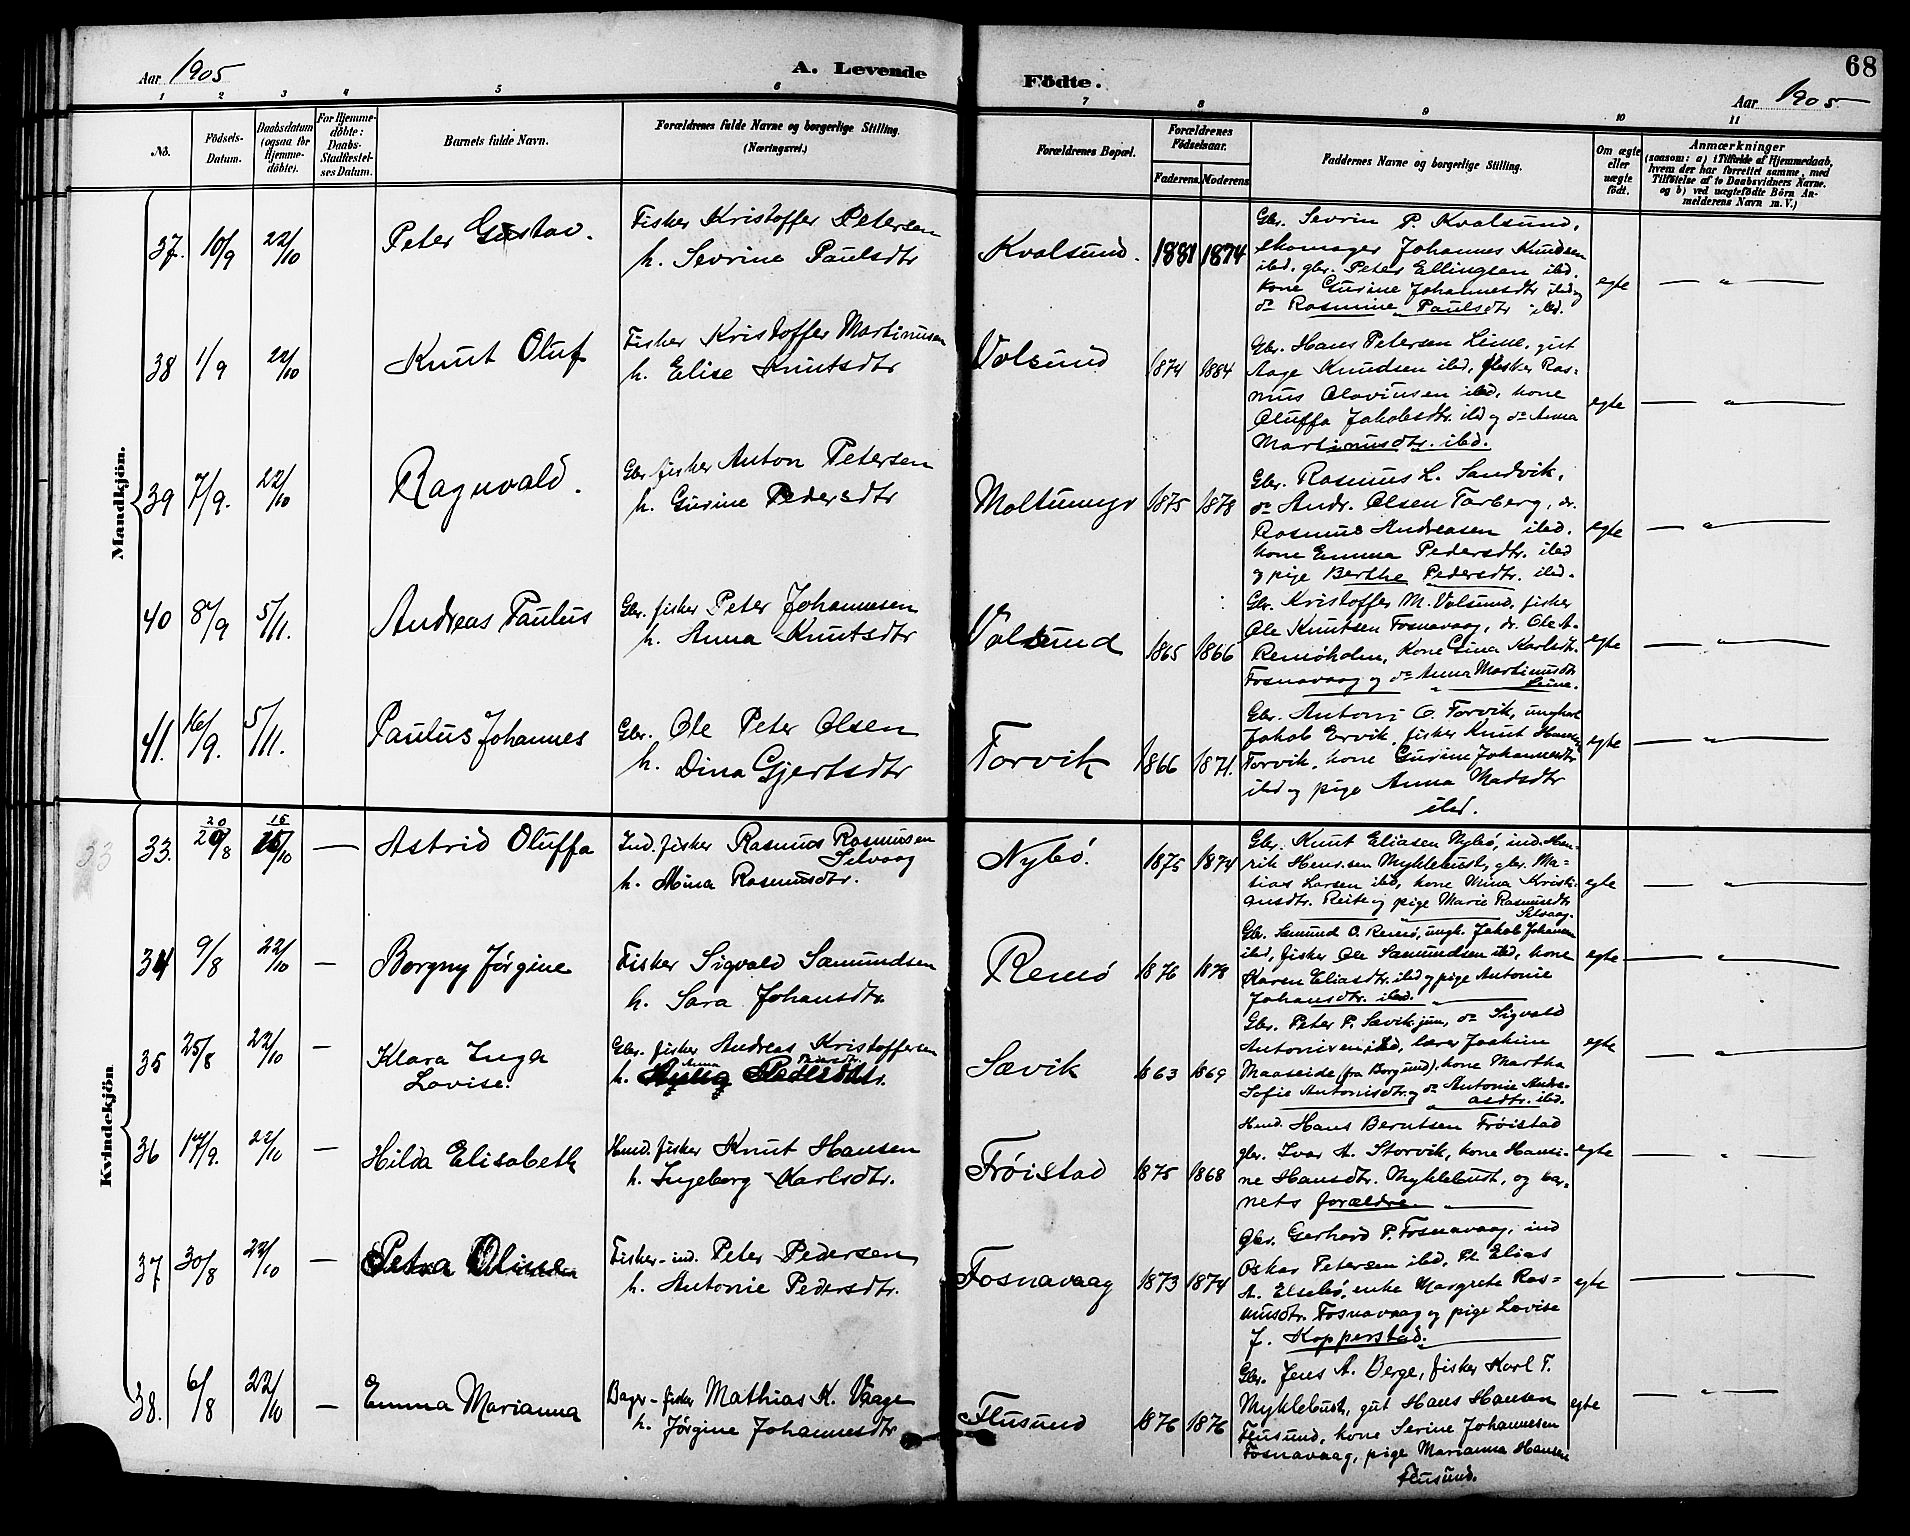 Aar 1905
A. Levende
Födte.
68
Aar 1905
1 2 3 4 5 6 7 8 9 10 11
No.
Födsels-
Datum.
Daabsdatum
(ogsaa for
Hjemme-
döbte).
For Hjemme-
döbte:
Daabs-
Stadfæstel-
ses Datum.
Barnets fulde Navn.
Forældrenes fulde Navne og borgerlige Stilling.
(Næringsvei.)
Forældrenes Bopæl.
Forældrenes
Födselsaar.
Faderens. Moderens
Faddernes Navne og borgerlige Stilling.
Om ægte
eller
uægte
födt.
Anmærkninger
(saasom: a) i Tilfælde af Hjemmedaab,
hvem der har forrettet samme, med
Tilföielse af to Daabsvidners Navne.
og b) ved uægtefödte Börn An-
melderens Navn m. V.)
Mandkjön.
37. 10/9 22/10 Peter Gustav.
Fisker Kristoffer Petersen
h. Sevrine Paulsdtr
Kvalsund. 1881 1874
Gbr. Sevrin P. Kvalsund,
skomager Johannes Knudsen
ibd. gbr. Peter Ellingsen ibd.
kone Gurine Johannesdtr ibd og
do Rasmine Paulsdtr ibd.
egte — " —
38 1/9 22/10 Knut Oluf
Fisker Kristoffer Martinusen
h. Elise Knutsdtr
Volsund 1874 1884
Gbr. Hans Petersen Leine, gut
Aage Knudsen ibd, fisker Ras-
mus Olavinsen ibd, kone
Oluffa Jakobsdtr. ibd og do Anna
Martinusdtr. ibd.
egte — " —
39 7/9. 22/10 Ragnvald.
Gbr. fisker Anton Petersen
h. Gurine Pedersdtr
Moltumyr 1875 1878
Gbr. Rasmus L. Sandvik,
do Andr. Olsen Tarberg, do.
Rasmus Andreasen ibd.
kone Emma Pedersdtr. ibd
og pige Berthe Pedersdtr. ibd.
egte — " —
40 8/9 5/11. Andreas Paulus
Gbr. fisker Peter Johannesen
h. Anna Knutsdtr
Volsund 1865 1866
Gbr. Kristoffer M. Volsund, fisker
Ole Knutsen Fosnavaag, do. Ole A.
Remøholm, Kone Gina Karlsdt.
Fosnavaag og do Anna Martinusdtr
Leine.
egte — " —
41. 16/9. 5/11. Paulus Johannes
Gbr. Ole Peter Olsen
h. Dina Gjertsdtr
Torvik 1866 1871.
Gbr. Antoni O. Torvik, ungkarl
Jakob Ervik, fisker Knut Hansen
Torvik, kone Gurine Johannesdtr
ibd og pige Anna Madsdtr
ibd.
egte — " —
Kvindekjön
33. 20/8 15/10 — Astrid Oluffa
Ind. fisker Rasmus Rasmusen
Selvaag
h. Mina Rasmusdtr.
Nybø. 1875 1874
Gbr. Knut Eliasen Nybø, ind. Hen-
rik Henr.sen Myklebust, gbr. Ma-
tias Larsen ibd, kone Mina Kristi-
ansdtr. Reite og pige Marie Rasmusdtr
Selvaag.
egte — " —
34 9/8 22/10 — Borgny Jørgine
Fisker Sigvald Sæmundsen
h. Sara Johansdtr
Remø 1876 1878
Gbr. Semund O. Remø, ungk. Jakob Johansen
ibd, fisker Ole Sæmundsen ibd, kone
Karen Eliasdtr. ibd og pige Antonie
Johansdtr. ibd.
egte — " —
35 25/8 22/10 — Klara Inga
Lovise.
Gbr. fisker Andreas Kristoffersen
h.
Sævik 1863 1869
Gbr. Peter P. Sævik jun, do Sigvald
Antonisen ibd, lærer Joakim
Maaseide (fra Borgund), kone Martha
Sofie Antonisdtr. og do Antonie Andre-
asdtr. ibd.
egte — " —
36 17/9. 22/10 — Hilda Elisabeth
Hmd. fisker Knut Hansen
h. Ingeborg Karlsdtr.
Frøistad 1875 1868
Hmd. Hans Berntsen Frøistad
gbr. Ivar A. Storvik, kone Hansi-
ne Hansdtr. Myklebust, og bar-
nets forældre.
egte — " —
37 30/8 22/10 — Petra Oline
Fisker - ind. Peter Pedersen
h. Antonie Pedersdtr.
Fosnavaag 1873 1874
Gbr. Gerhard P. Fosnavaag, ind
Oskar Petersen ibd, Elias
A. Elsebø, enke Margrete Ras-
musdtr. Fosnavaag og pige Lovise
J. Kopperstad.
egte — " —
38. 6/8 22/10 — Emma Marianna
Bager - fisker Mathias K. Vaage
h. Jørgine Johannesdtr
Flusund 1876 1876
Gbr. Jens A. Berge, fisker Karl T.
Myklebust, gut Hans Hansen
Flusund, kone Serine Johannesen
Fosnavaag, pige Marianna Hansen
Flusund.
egte — " —